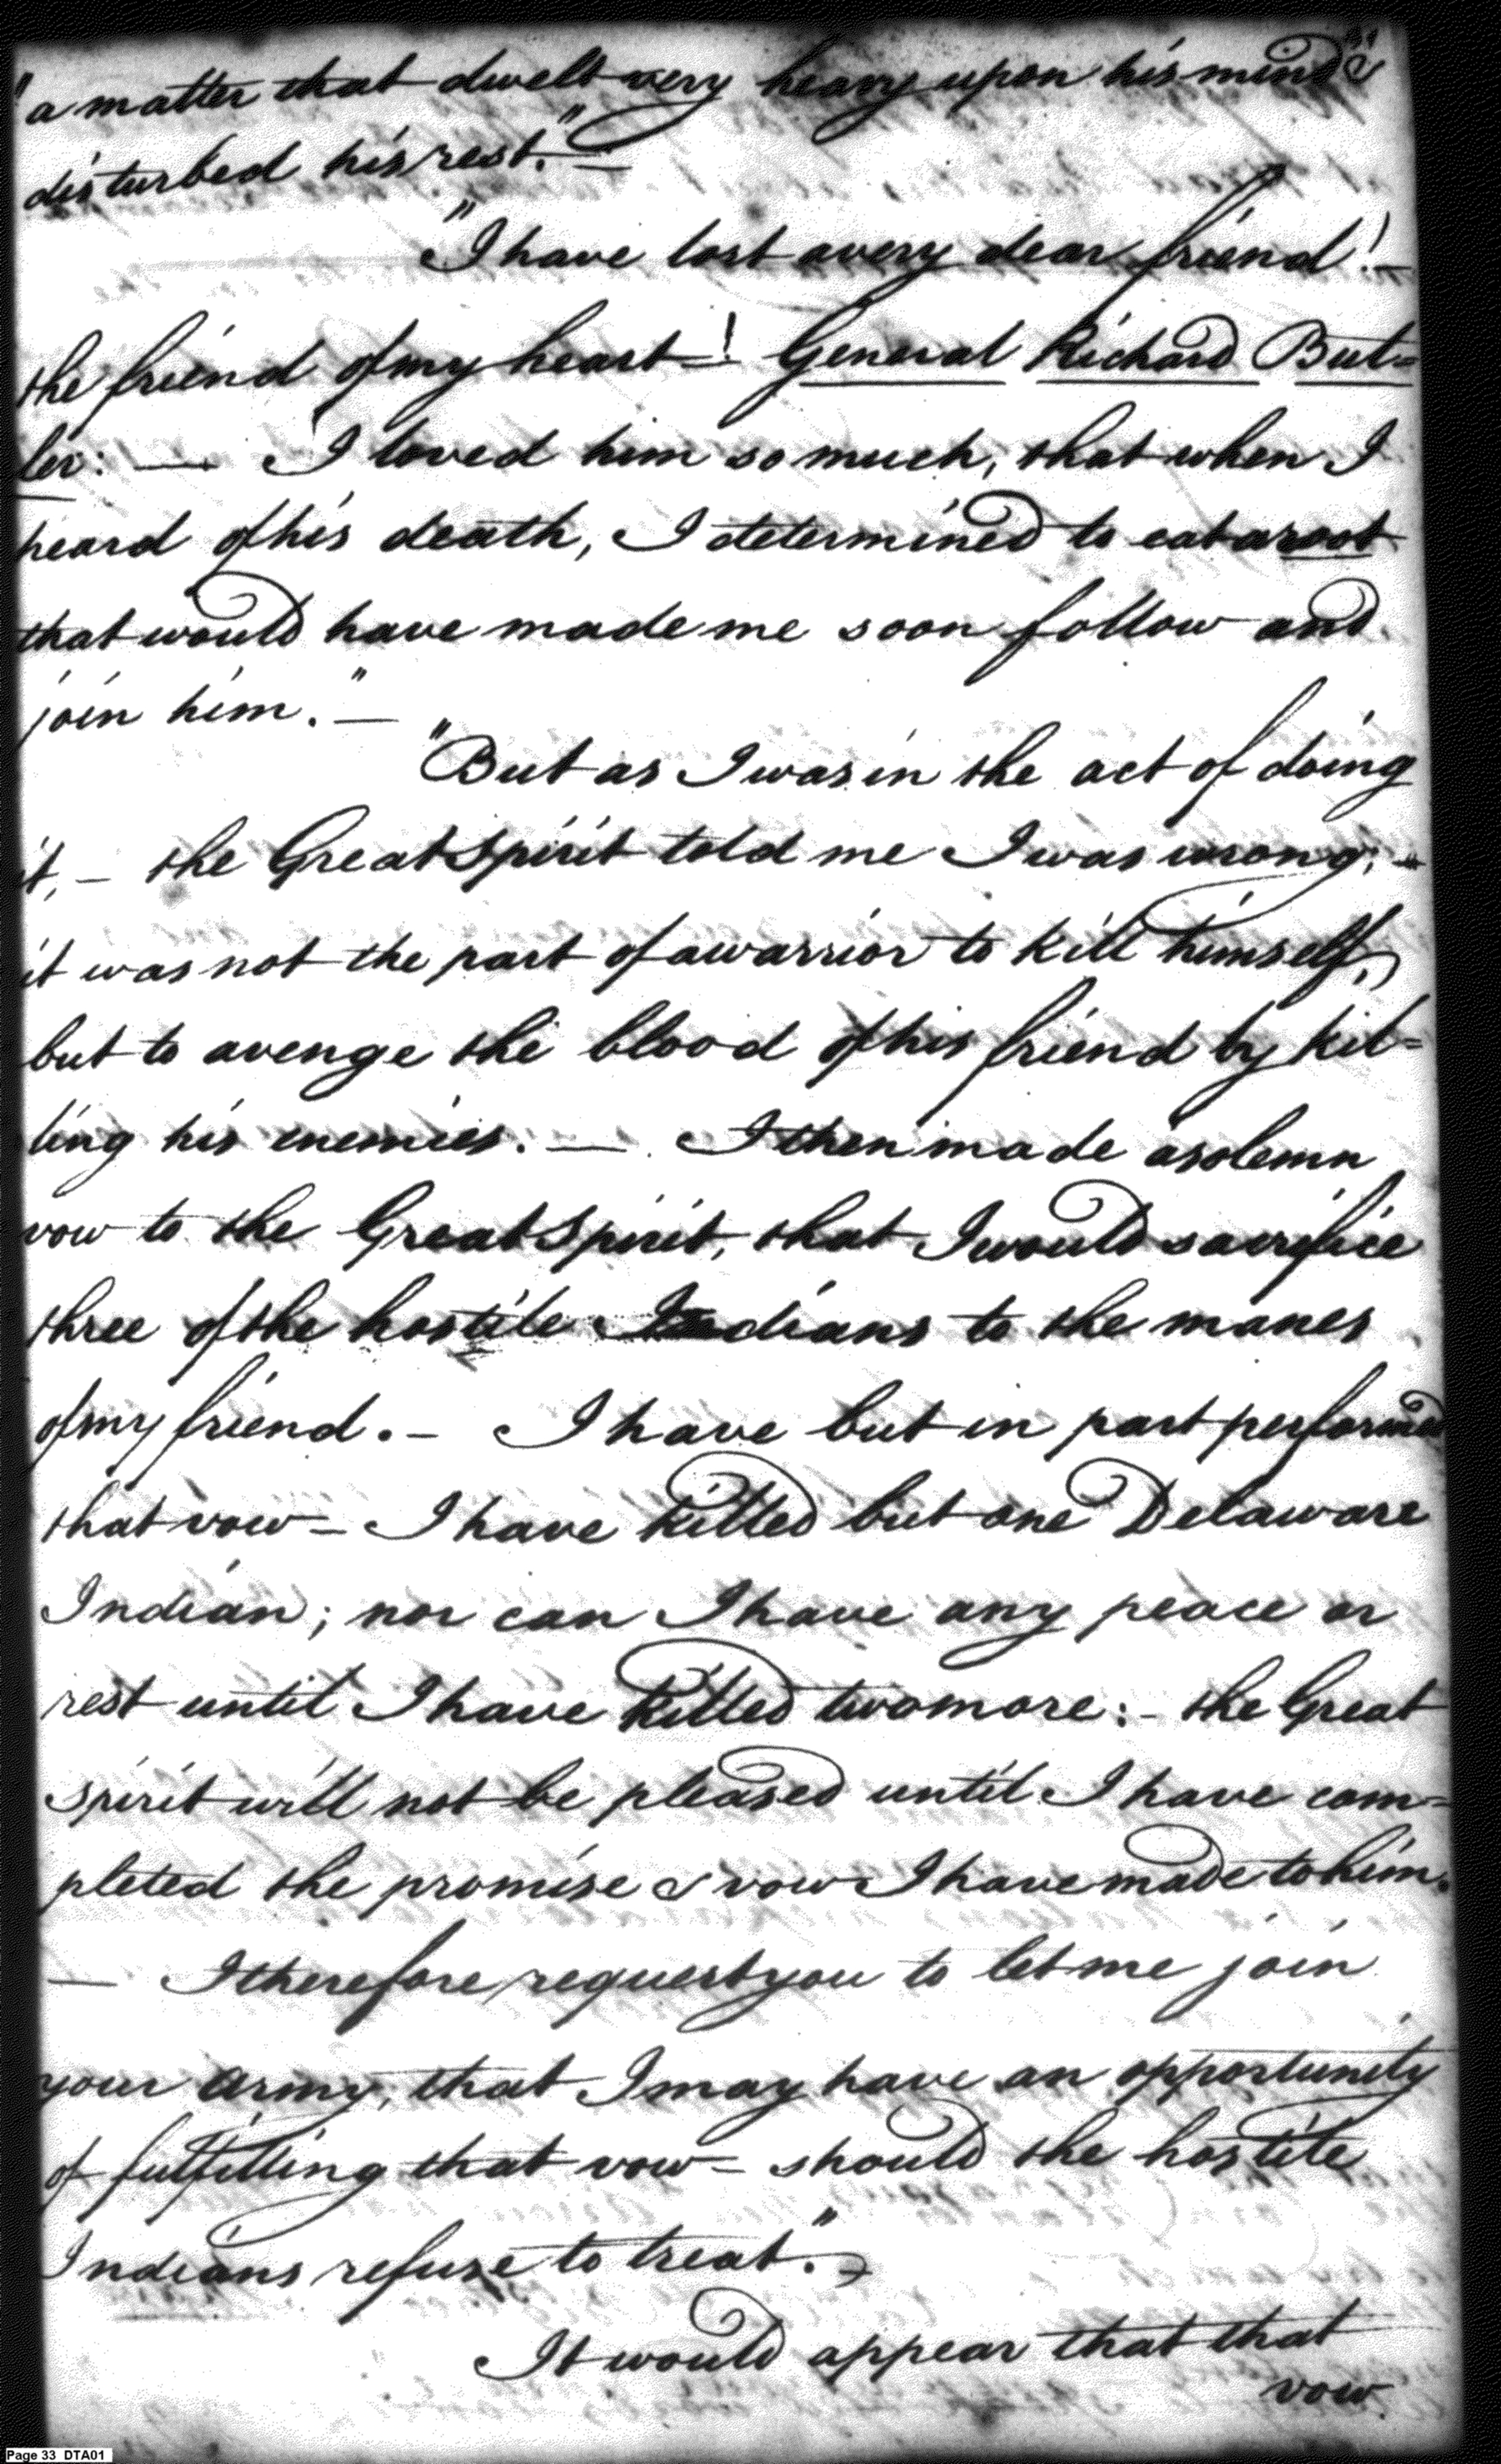 "a matter that dwelt very heavy upon his mind &
disturbed his rest." —
"I have lost a very dear friend! —
the friend of my heart! General Richard But=
ler: — I loved him so much, that when I
heard of his death, I determined to eat a root
that would have made me soon follow and
join him." —
"But as I was in the act of doing
it, — the Great Spirit told me I was wrong; —
it was not the part of a warrior to kill himself,
but to avenge the blood of his friend by kil=
ling his enemies. — I then made a solemn
vow to the Great Spirit, that I would sacrifice
three of the hostile Indians to the manes
of my friend. — I have but in part performed
that vow — I have killed but one Delaware
Indian; nor can I have any peace or
rest until I have killed two more: — the Great
Spirit will not be pleased until I have com=
pleted the promise & vow I have made to him.
— I therefore request you to let me join
your army, that I may have an opportunity
of fulfilling that vow — should the hostile
Indians refuse to treat." —
It would appear that that
vow
Page 33 DTA01